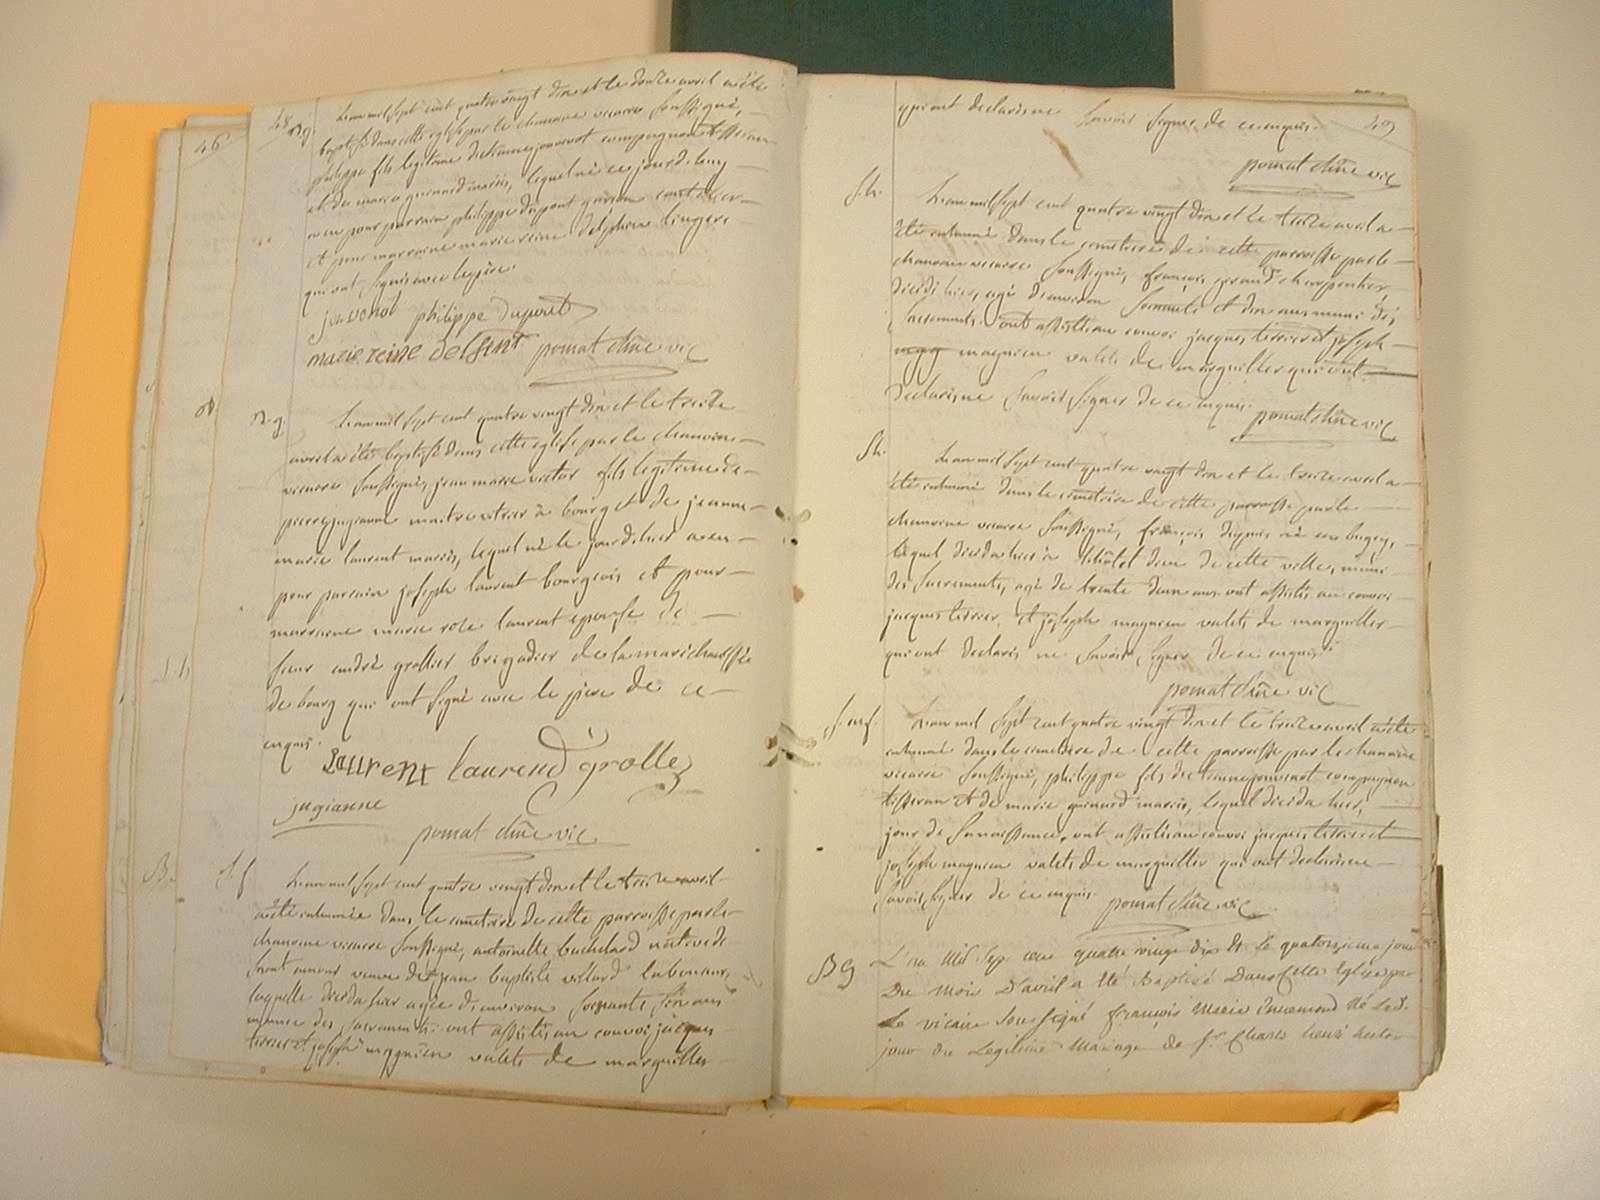 46
48
B.g.
L'an mil sept cent quatre vingt dix et le douze avril a été
baptisé dans cette eglise par le chanoine vicaire soussigné,
philippe fils legitime d'etienne jouvenot compagnon tisseran
et de marie guinard mariés, lequel né ce jourd'huy
a eu pour parrain philippe dupont garçon
et pour marraine marie reine delphin lingere
qui ont signés avec le père
jouvenot philippe dupont
marie reine pomat chne vic
B.g.
L'an mil sept cent quatre vingt dix et le treize
avril a été baptisé dans cette eglise par le chanoine
vicaire soussigné, jean marie victor fils legitime de
pierre jugianne maitre vitrier à bourg et de jeanne
marie laurent mariés, lequel né le jour d'hier a eu
pour parrain joseph laurent bourgeois et pour
marraine marie rose laurent epouse de
sieur andré grollier brigadier de la marechaussée
de bourg qui ont signé avec le père de ce
enquis.
Laurent laurend grolle
jugianne
pomat chne vic
B.
S f
L'an mil sept cent quatre vingt dix et le treize avril
a été inhumée dans le cimetiere de cette parroisse par le
chanoine vicaire soussigné, antoinette bachelard native de
saint amour veuve de jean baptiste villard laboureur,
laquelle décéda hier agée d'environ soixante six ans
munie des sacrements ont assistés au convoi jacques
terrier et joseph magnien valets de marguiller
qui ont declaré ne savoir signer de ce enquis.
49
pomat chne vic
S.h.
L'an mil sept cent quatre vingt dix et le treize avril a
été inhumé dans le cimetiere de cette parroisse par le
chanoine vicaire soussigné, françois girand charpentier,
décédé hier, agé d'environ soixante et dix ans muni des
sacrements ont assistés au convoi jacques terrier et joseph
magnien valets de marguiller qui ont
declaré ne savoir signer de ce enquis.
pomat chne vic
S.h.
L'an mil sept cent quatre vingt dix et le treize avril a
été inhumé dans le cimetiere de cette parroisse par le
chanoine vicaire soussigné, françois né en bugey,
lequel décéda hier à l'hôtel dieu de cette ville, muni
des sacrements, agé de trente deux ans ont assistés au convoi
jacques terrier et joseph magnien valets de marguiller
qui ont declaré ne savoir signer de ce enquis
pomat chne vic
L'an mil sept cent quatre vingt dix et le treize avril a été
inhumé dans le cimetiere de cette parroisse par le chanoine
vicaire soussigné, philippe fils d'etienne jouvenot compagnon
tisseran et de marie guinard mariés, lequel décéda hier,
jour de sa naissance, ont assistés au convoi jacques terrier et
joseph magnien valets de marguiller qui ont declaré ne
savoir signer de ce enquis.
pomat chne vic
B G
L'an Mil Sep cen quatre vingt dix et le quatorzieme jour
Du Mois D'avril a été Baptisé Dans Cette Eglise par
Le vicaire Sousigné françois Marie né Led.
jour du Legitime Mariage de Sr. Charles